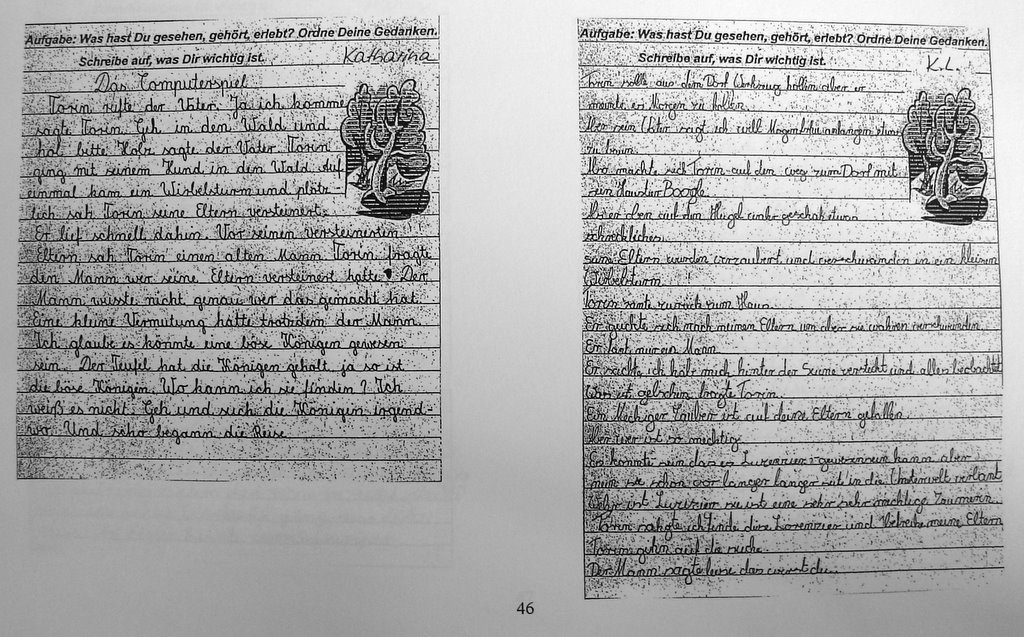 Aufgabe: Was hast Du gesehen, gehört, erlebt? Ordne Deine Gedanken.
Schreibe auf, was Dir wichtig ist.
Katharina
Das Computerspiel
Torin rufte der Vater. Ja ich komme
sagte Torin. Geh in den Wald und
hol bitte Holz sagte der Vater. Torin
ging mit seinem Hund in den Wald auf
einmal kam ein Wirbelsturm und plötz-
lich sah Torin seine Eltern versteinert.
Er lief schnell dahin. Vor seinen versteinerten
Eltern sah Torin einen alten Mann Torin fragte
den Mann wer seine Eltern versteinert hatte. Der
Mann wusste nicht genau wer das gemacht hat.
Eine kleine Vermutung hatte trotzdem der Mann.
Ich glaube es könnte eine böse Königen gewesen
sein. Der Teufel hat die Königen geholt ja so ist
die böse Königen. Wo kann ich sie finden? Ich
weiß es nicht. Geh und such die Königen irgend-
wo. Und schon begann die Reise
Aufgabe: Was hast Du gesehen, gehört, erlebt? Ordne Deine Gedanken.
Schreibe auf, was Dir wichtig ist.
K.L.
Torin solte aus dem Dorf Werkzeug hollen aber er
meinte er Morgen zu hollen.
Aber sein Vater sagt ich will Morgen früh anfangen
zu
machte sich Torin auf den weg zum Dorf mit
sein Boogle.
aber oben auf dem Hügel geschah etwas
schreckliches.
seine Eltern wurden verzaubert und verschwanden in ein kleinen
Wirbelsturm.
Torin rante zurück zum Haus.
Er guckte sich nach meinen Eltern um aber sie wahren verschwunden
Er fant nur ein Mann.
Er sachte ich hab mich hinter der Scune versteckt und alles beobachtet
Was ist geschen fragte Torin.
Ein Mechtiger Zauber ist auf deine Eltern gefallen
Aber wer ist so mechtig
Es könnte sein das es gewesen sein kann aber
nun sie schon vor langer langer zeit in die Unterwelt verbant
ist sie ist eine sehr sehr mechtige
Torin sahgte ich finde dise und meine Eltern
Torin gehn auf die suche.
Der Mann sagte leise das wirst du.
46